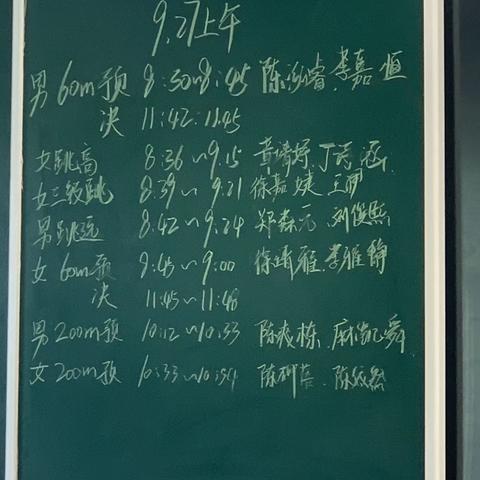 9.27上午
男60m预 8:30~8:45 陈 李嘉恒
决 11:42 11:45
女跳高 8:36~9:15 黄靖婷 丁 涵
女三级跳 8:39~9:21 徐嘉婕 王
男跳远 8:42~9:24 郑森元 刘俊熙
女60m预 8:45~9:00 徐靖雅 李雅静
决 11:45~11:48
男200m预 10:12~10:33 陈 栋 麻凯舜
女200m预 10:33~10:54 陈 陈